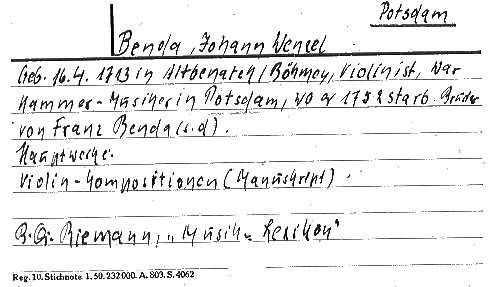 Potsdam
Benda, Johann Wenzel
Geb. 16.4. 1713 in Altbenatek/Böhmen, Violinist, war
Kammer-Musiker in Potsdam, wo er 1752 starb. Bruder
von Franz Benda (s.d).
Hauptwerke:
Violin-Kompositionen (Manuskript).
R.G. Riemann, „Musik-Lexikon"
Reg. 10. Stichnote 1. 50. 232000. A. 803. S. 4062